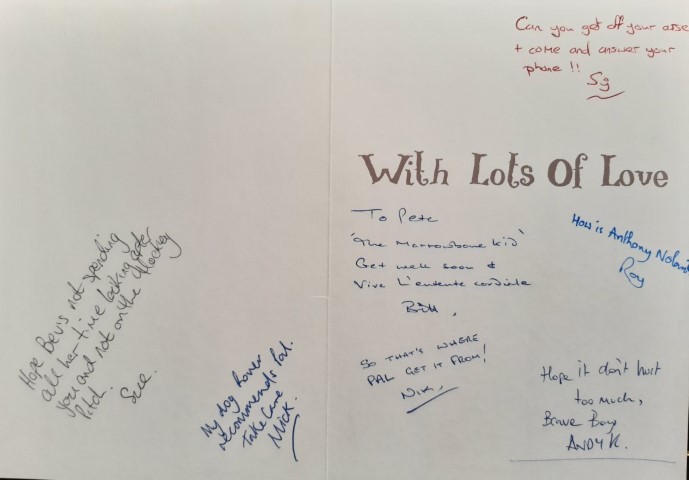 Can you get off your arse
+ come and answer your
phone !!
Sg
With Lots Of Love
To Pete
'The Marrowbone Kid'
Get well soon &
Vive L'entente cordiale
Bill,
How is Anthony Nolan's
Roy
So THAT'S WHERE
PAL GET IT FROM!
Nik,
Hope it don't hurt
too much,
Brave Boy
ANDY K.
Hope Bev's not spending
all her time looking after
you and not on the Hockey
Pitch.
Sue.
My dog Rover
recommends Pal.
Take Care
Mick.